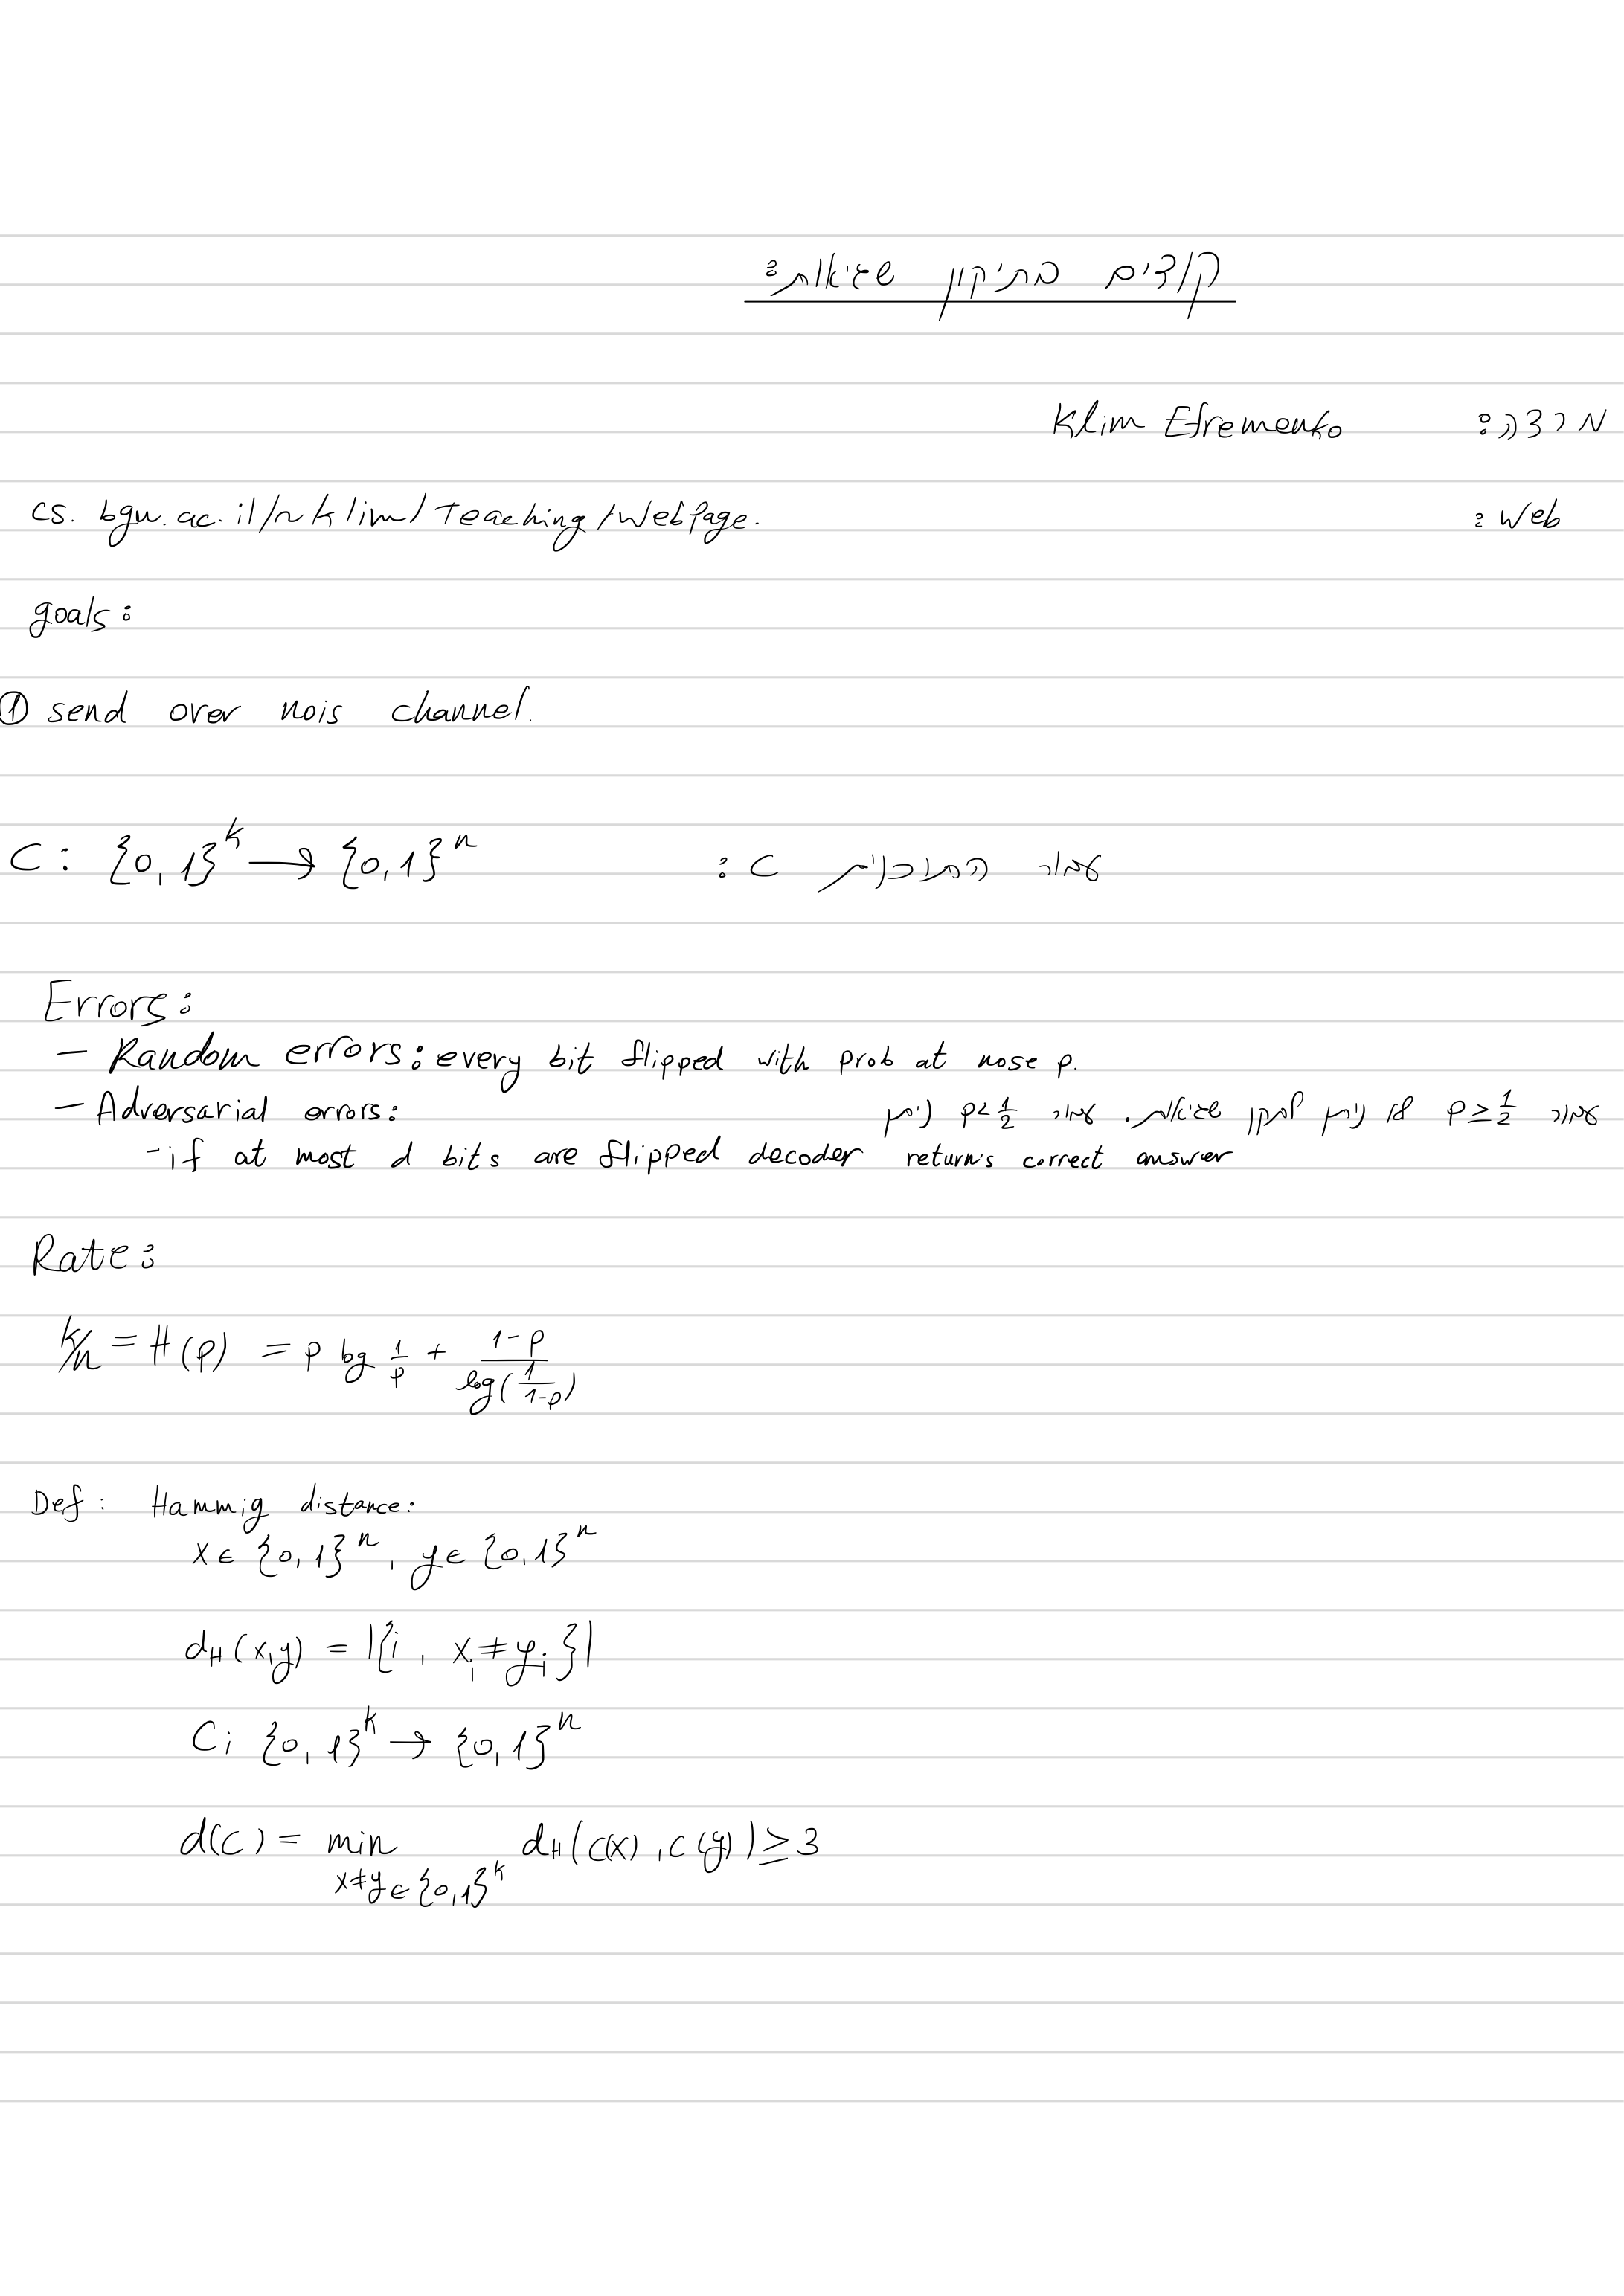 קודים בתיקון שגיאות:
מרצה: Klim Efremenko
Web: cs.bgu.ac.il/~klim/Teaching/Webpage.
goals:
① send over nois channel.
C: {0,1}^k → {0,1}^n עבור התוכנית C:
Errors:
- Random errors: every bit flipped with prob at nose p.
- Adversarial errors: עבור p ≥ 1/2 לא ניתן לתקן שגיאות. עבור p < 1/2 ניתן
- if at most d bits are flipped decoder return's correct answer
Rate:
k/n = H(p) = p log 1/p + (1-p)/(log(1/(1-p)))
Def: Hammig distance:
x ∈ {0,1}^n, y ∈ {0,1}^n
d_H(x,y) = |{i, x_i ≠ y_i}|
C: {0,1}^k → {0,1}^n
d(C) = min_{x≠y∈{0,1}^k} d_H(C(x), C(y)) ≥ 3